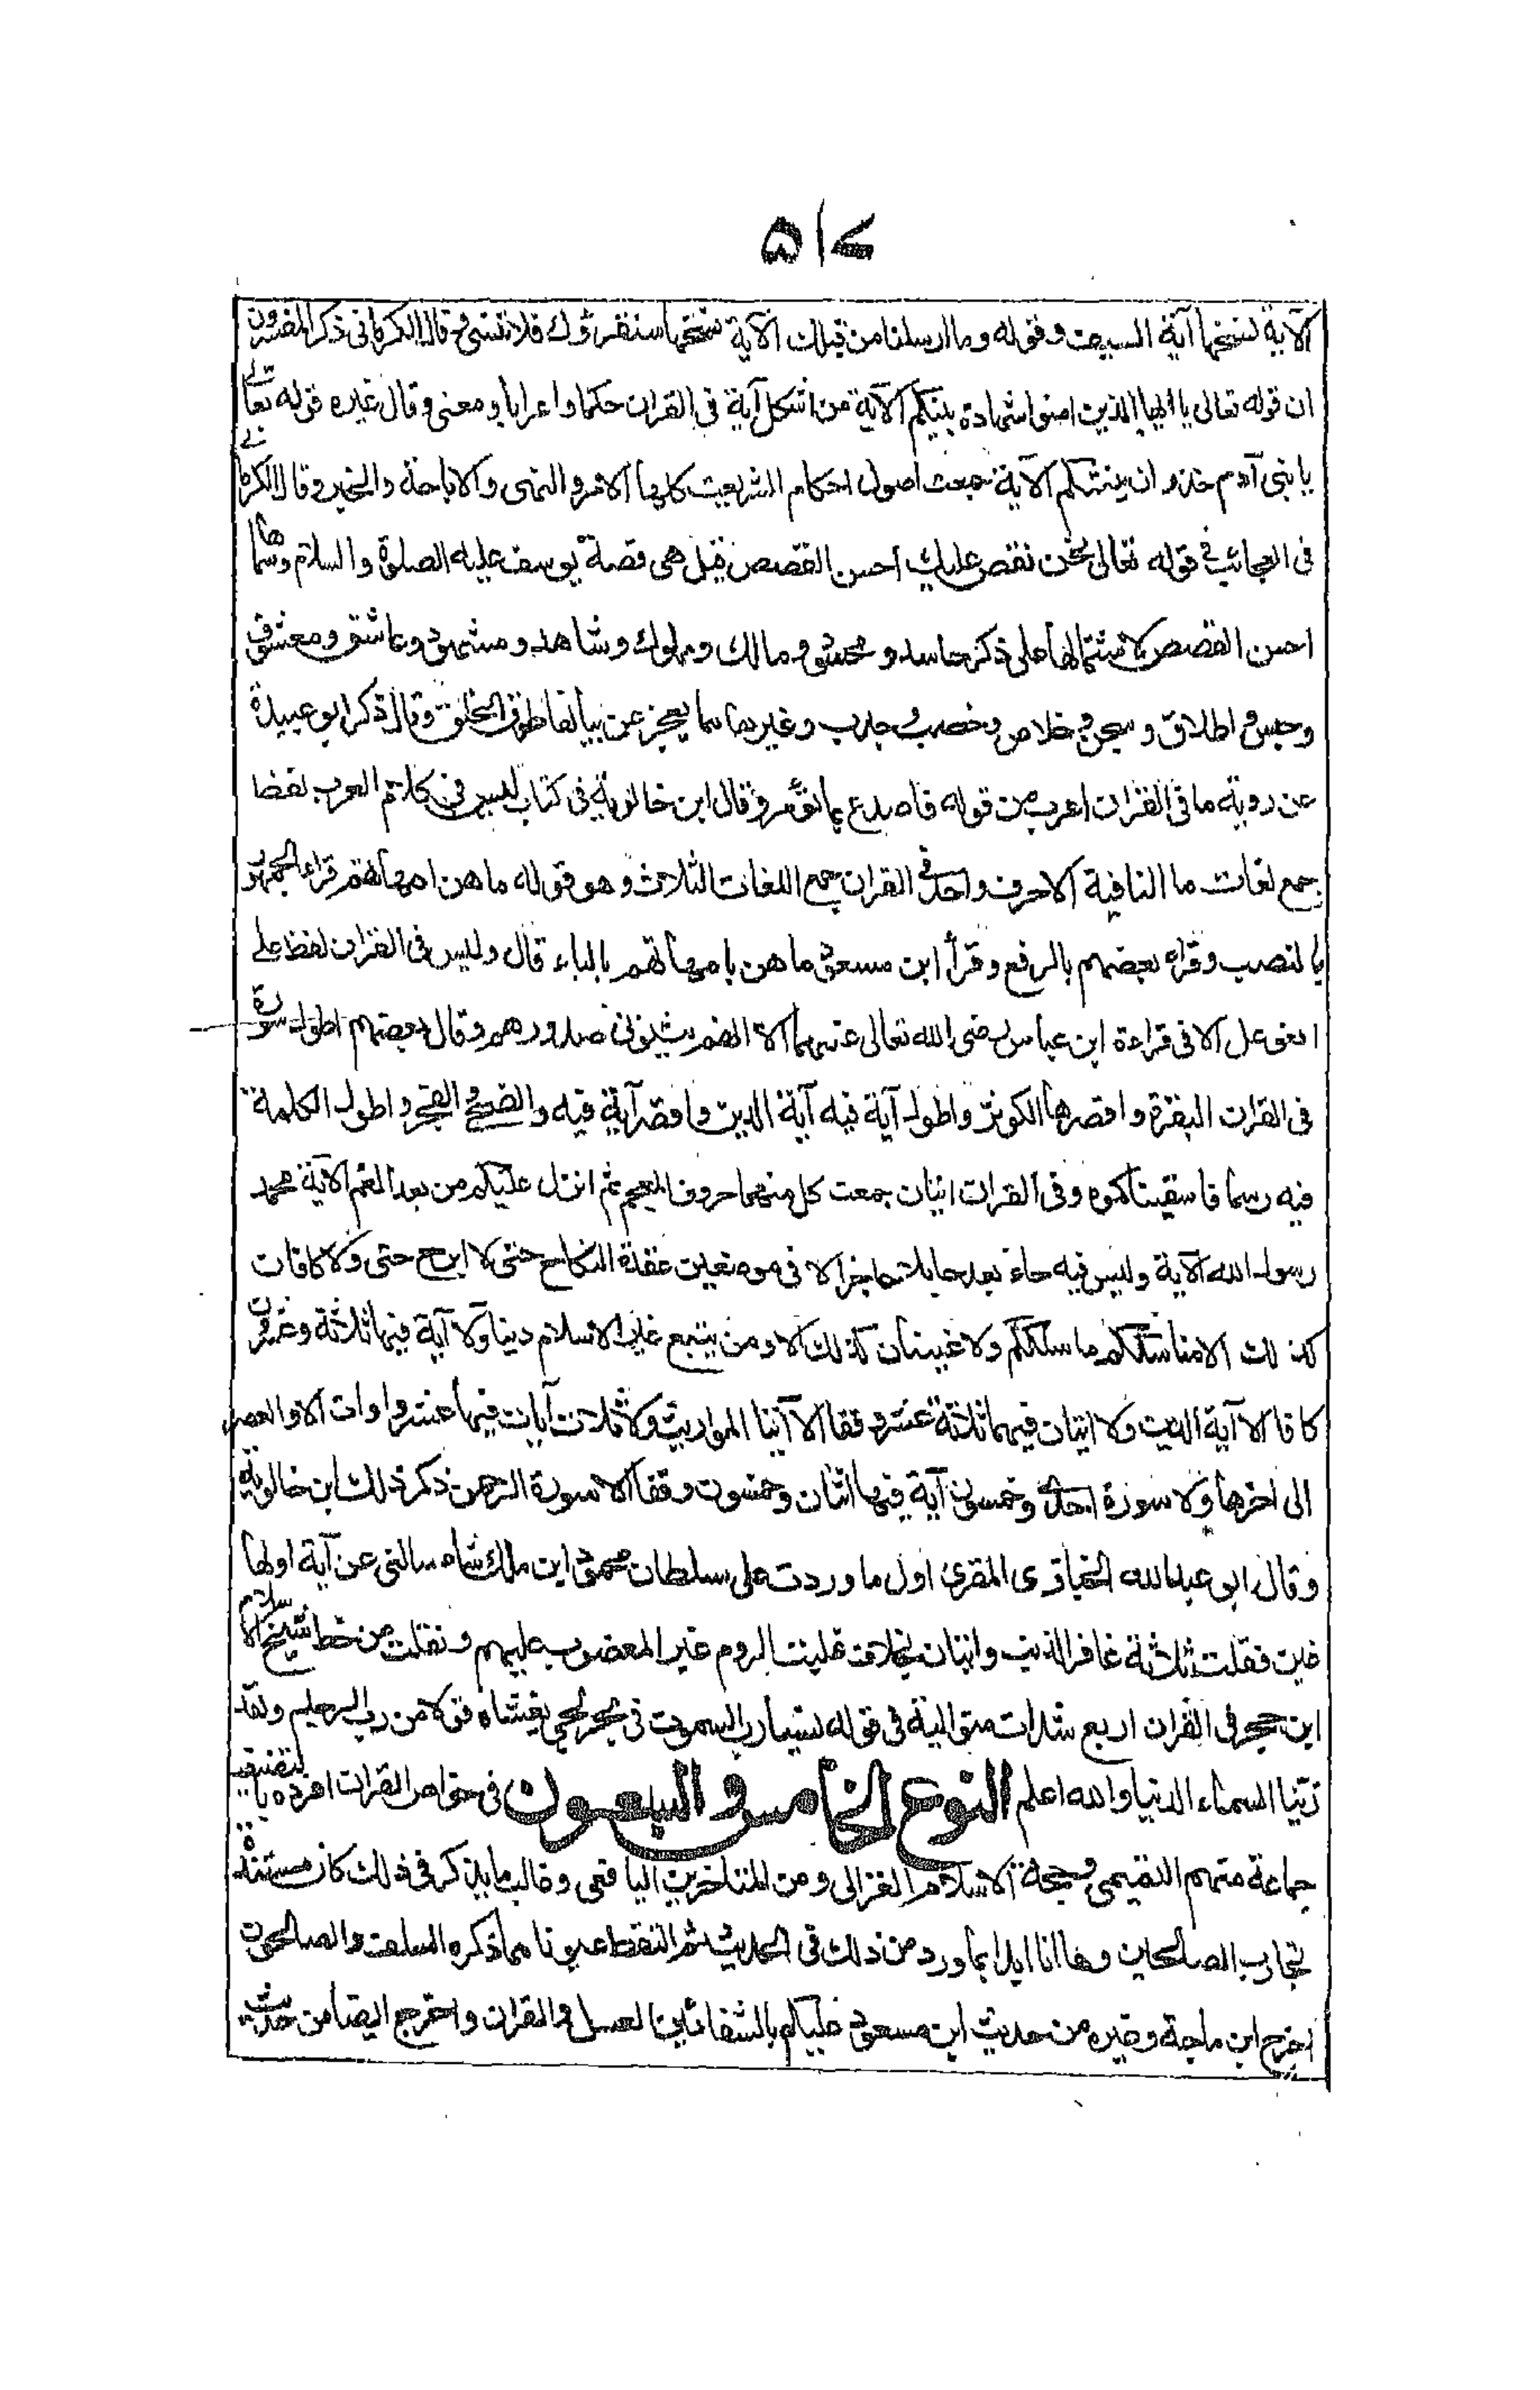 ۵۱۷
الآية نسختها آية السيف وقوله وما ارسلنا من قبلك الآية نسختها سنقرئك فلا تنسى وقال الكرمانى ذكر المفسرون
ان قوله تعالى يا ايها الذين امنوا شهادة بينكم الآية من اشكل آية فى القران حكما واعرابا ومعنى وقال غيره قوله تعالى
يا بنى آدم خذوا زينتكم الآية جمعت اصول احكام الشريعة كلها الامر والنهى والاباحة والخبر وقال الكرمانى
فى العجائب فى قوله تعالى نحن نقص عليك احسن القصص قيل هى قصة يوسف عليه الصلوة والسلام وسماها
احسن القصص لاشتمالها على ذكر حاسد و محسود ومالك ومملوك وشاهد ومشهود وعاشق ومعشوق
وحبس واطلاق وسجن وخلاص وخصب وجدب وغيرها مما يعجز عن بيانها طوق الخلق وقال ذكر ابو عبيدة
عن روبة ما فى القران اعرب من قوله فاصدع بما تؤمر وقال ابن خالوية فى كتاب ليس فى كلام العرب لفظا
جمع لغات ما النافية الا حرف واحد فى القران جمع اللغات الثلاث وهو قوله ما هن امهاتهم قراء الجمهور
بالنصب وقراه بعضهم بالرفع وقرأ ابن مسعود ما هن بامهاتهم بالباء قال وليس فى القران لفظ على
افعوعل الا فى قراءة ابن عباس رضى الله تعالى عنهما الا انهم يثنونى صدورهم وقال بعضهم اطول سورة
فى القران البقرة واقصرها الكوثر واطول آية فيه آية الدين واقصر آية فيه والضحى والفجر واطول الكلمة
فيه رسما فاسقيناكموه وفى القران ايتان جمعت كل منهما حروف المعجم ثم انزل عليكم من بعد الغم الآية محمد
رسول الله الآية وليس فيه حاء بعد حاء بلا حاجز الا فى موضعين عقدة النكاح حتى لا ابرح حتى ولا كافات
كذلك الا مناسككم ما سلككم ولا غينان كذلك الا ومن يبتغ غير الاسلام دينا ولا آية فيها ثلاثة وعشرون
كافا الا آية الدين ولا ايتان فيهما ثلاثة عشر وقفا الا آيتا المواريث ولا ثلاث آيات فيها عشر واوات الا والعصر
الى اخرها ولا سورة احدى وخمسون آية فيها اثنان وخمسون وقفا الا سورة الرحمن ذكر ذلك ابن خالويه
وقال ابو عبد الله الخبازى المقرئ اول ما وردت على سلطان محمود ابن ملك شاه سالنى عن آية اولها
غين فقلت ثلاثة غافر الذنب وايتان بخلاف غلبت الروم غير المغضوب عليهم ونقلت من خط شيخ الاسلام
ابن حجر فى القران اربع شدات متوالية فى قوله نسيا رب السموت فى بحر لجى يغشاه قولا من رب الرحيم ولقد
زينا السماء الدنيا والله اعلم النوع الخامس والسبعون فى خواص القران افرده بالتصنيف
جماعة منهم التميمى وحجة الاسلام الغزالى ومن المتاخرين اليافعى وغالب ما يذكر فى ذلك كان مستنده
تجارب الصالحين وها انا ابدا بما ورد من ذلك فى الحديث ثم التقط عيونا مما ذكره السلف والصالحون
اخرج ابن ماجة وغيره من حديث ابن مسعود عليكم بالشفائين العسل والقران واخرج ايضا من حديث